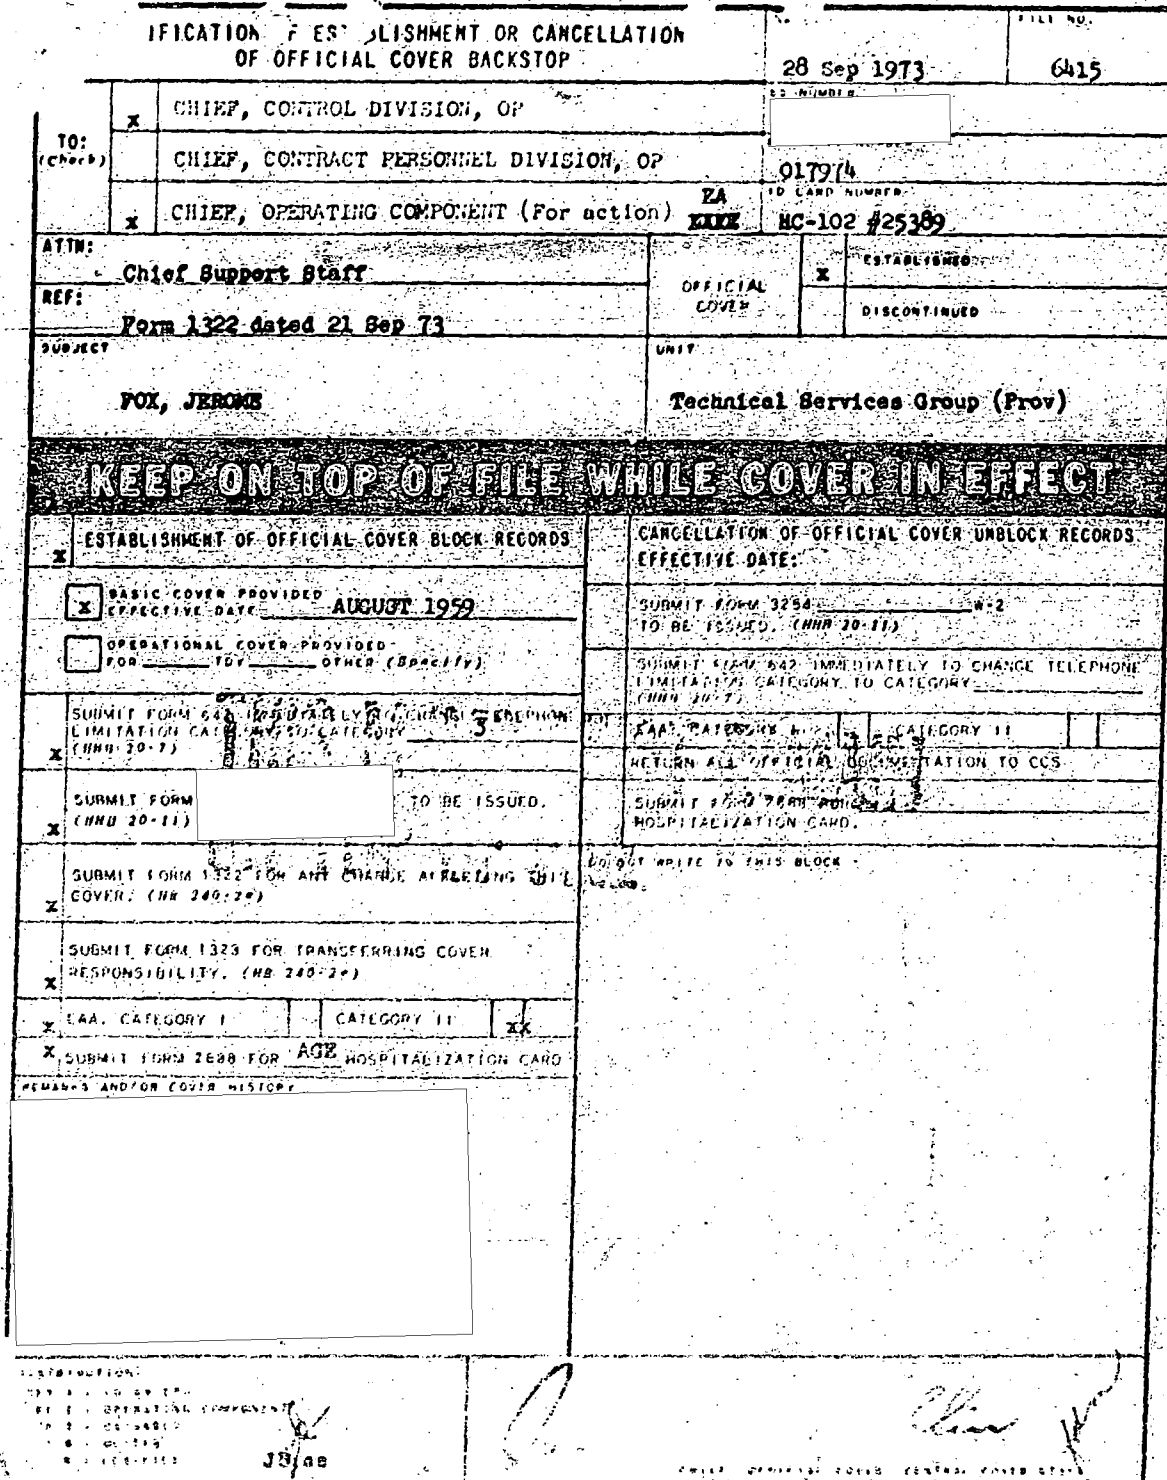 IFICATION OF ESTABLISHMENT OR CANCELLATION
OF OFFICIAL COVER BACKSTOP
28 Sep 1973
FILE NO.
6415
TO:
(Check)
x CHIEF, CONTROL DIVISION, OP
CHIEF, CONTRACT PERSONNEL DIVISION, OP
017974
x CHIEF, OPERATING COMPONENT (For action) EA
ID CARD NUMBER
HC-102 #25389
ATTN:
Chief Support Staff
REF:
Form 1322 dated 21 Sep 73
OFFICIAL
COVER
x ESTABLISHED
DISCONTINUED
SUBJECT
FOX, JEROME
UNIT
Technical Services Group (Prov)
KEEP ON TOP OF FILE WHILE COVER IN EFFECT
x ESTABLISHMENT OF OFFICIAL COVER BLOCK RECORDS
x BASIC COVER PROVIDED
EFFECTIVE DATE AUGUST 1959
OPERATIONAL COVER PROVIDED
FOR TDY OTHER (Specify)
x SUBMIT FORM 642 IMMEDIATELY TO CHANGE TELEPHONE
LIMITATION CATEGORY TO CATEGORY 3
(HHB 20-7)
x SUBMIT FORM TO BE ISSUED.
(HHB 20-11)
x SUBMIT FORM 1322 FOR ANY CHANGE AFFECTING THIS
COVER. (HR 240-2*)
x SUBMIT FORM 1323 FOR TRANSFERRING COVER
RESPONSIBILITY. (HR 240-2*)
x EAA. CATEGORY I CATEGORY II xx
x SUBMIT FORM 2688 FOR AGE HOSPITALIZATION CARD
REMARKS AND/OR COVER HISTORY
CANCELLATION OF OFFICIAL COVER UNBLOCK RECORDS
EFFECTIVE DATE:
SUBMIT FORM 3254 W-2
TO BE ISSUED. (HHB 20-11)
SUBMIT FORM 642 IMMEDIATELY TO CHANGE TELEPHONE
LIMITATION CATEGORY TO CATEGORY
(HHB 20-7)
EAA. CATEGORY I CATEGORY II
RETURN ALL OFFICIAL DOCUMENTATION TO CCS
SUBMIT FORM 2688 FOR
HOSPITALIZATION CARD.
DO NOT WRITE IN THIS BLOCK
DISTRIBUTION:
OPERATING COMPONENT